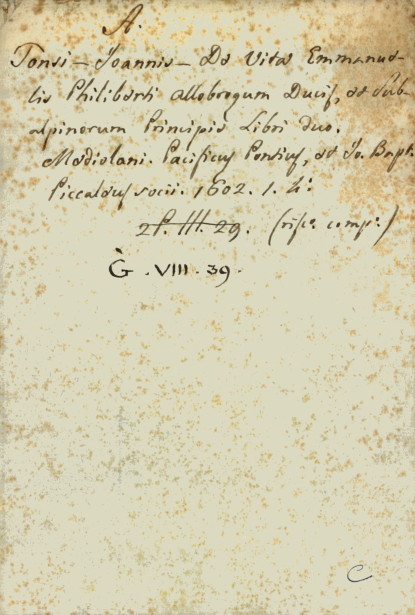 A.
Tonsi - Joannis - De Vita Emmanue-
lis Philiberti Allobrogum Ducis, et Sub-
alpinorum Principis Libri duo.
Mediolani. Pacificus Pontius, et Jo. Bapt.
Piccaldus socii. 1602. 1. 4:
2P. III. 29. (risc. comp.)
G . VIII . 39.
C